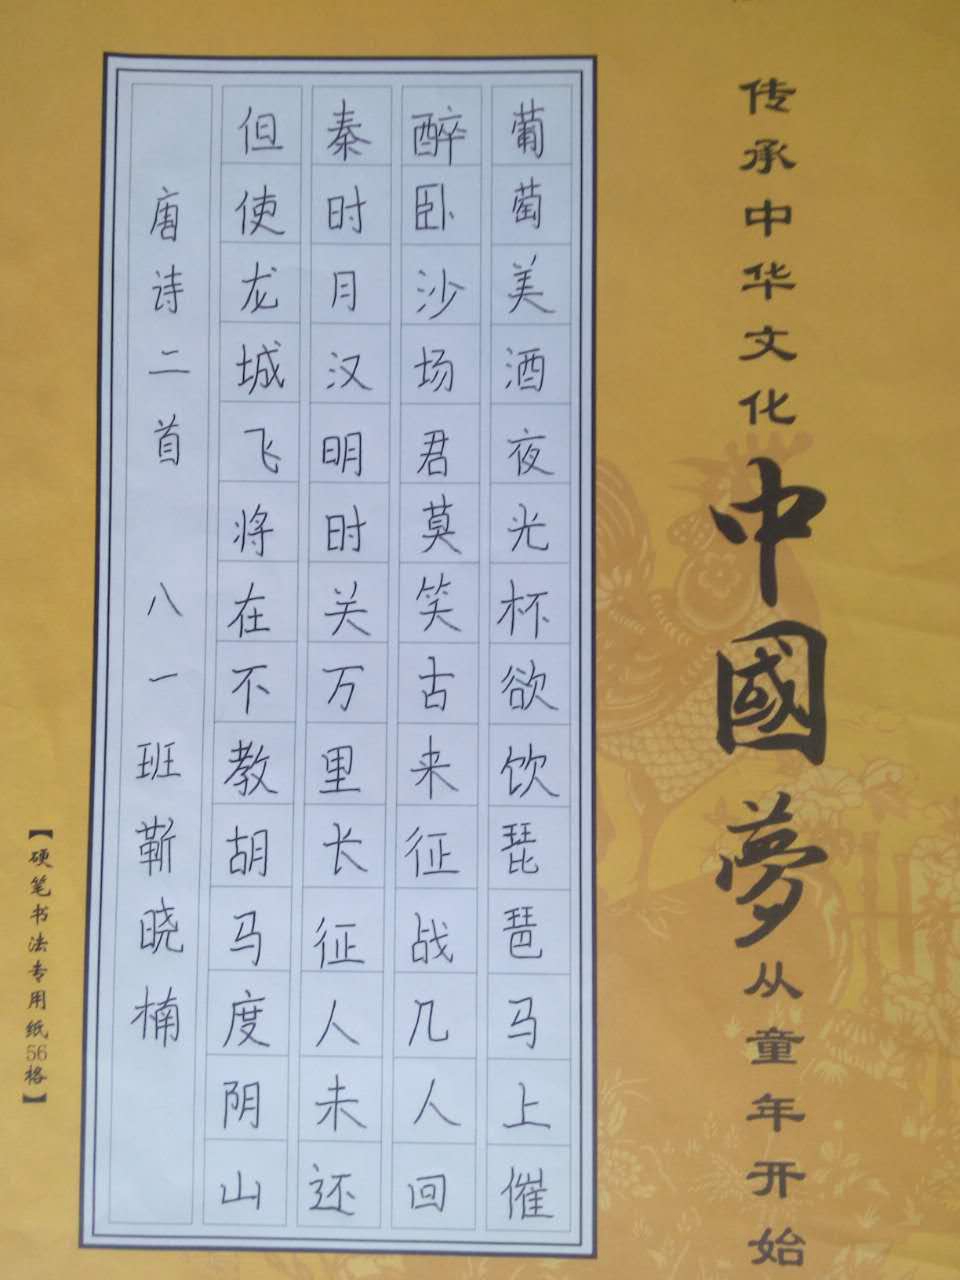 传承中华文化
中國夢
从童年开始
葡萄美酒夜光杯欲饮琵琶马上催
醉卧沙场君莫笑古来征战几人回
秦时月汉明时关万里长征人未还
但使龙城飞将在不教胡马度阴山
唐诗二首 八一班靳晓楠
【硬笔书法专用纸56格】